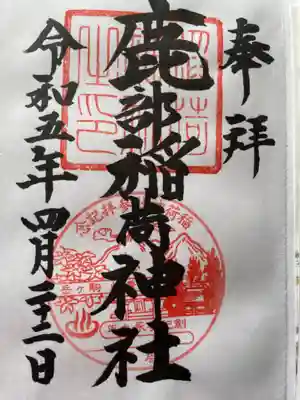 奉拝
鹿部稲荷神社
令和五年四月二十二日
駒ヶ岳